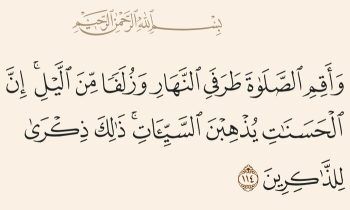 بِسْمِ اللَّهِ الرَّحْمَٰنِ الرَّحِيمِ
وَأَقِمِ الصَّلَوٰةَ طَرَفَيِ النَّهَارِ وَزُلَفًا مِّنَ الَّيْلِ ۚ إِنَّ
الْحَسَنَاتِ يُذْهِبْنَ السَّيِّئَاتِ ۚ ذَٰلِكَ ذِكْرَىٰ
لِلذَّاكِرِينَ ١١٤